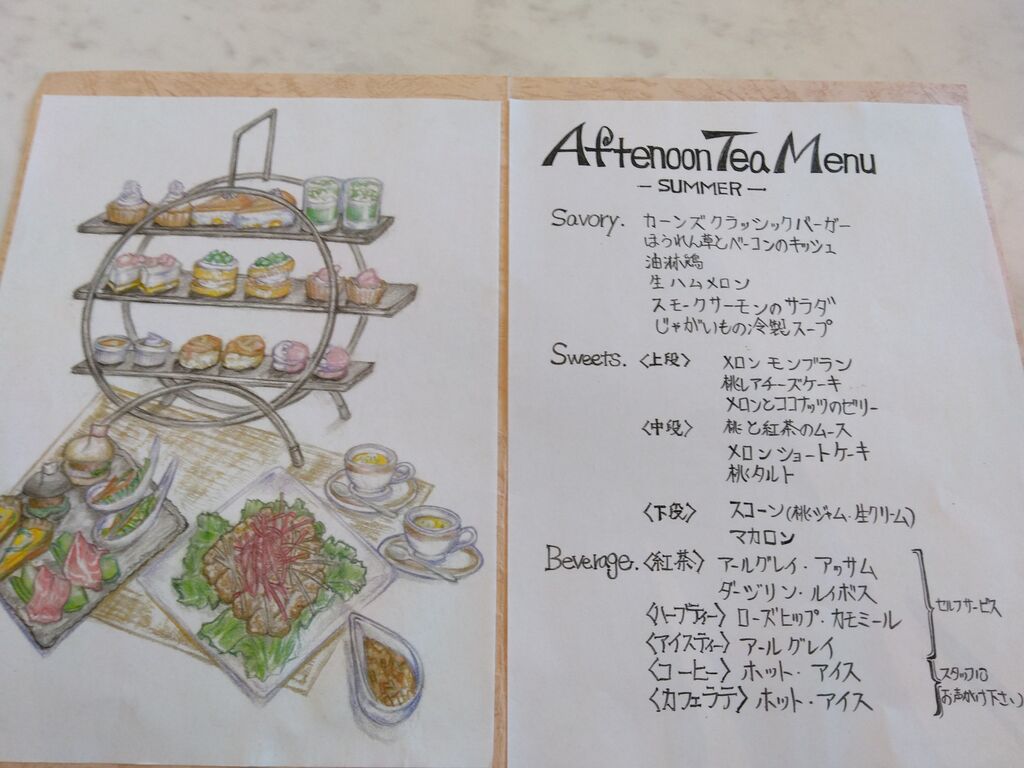 Aftenoon Tea Menu
- SUMMER -
Savory. カーンズクラッシックバーガー
ほうれん草とベーコンのキッシュ
油淋鶏
生ハムメロン
スモークサーモンのサラダ
じゃがいもの冷製スープ
Sweets. 〈上段〉 メロンモンブラン
桃レアチーズケーキ
メロンとココナッツのゼリー
〈中段〉 桃と紅茶のムース
メロンショートケーキ
桃タルト
〈下段〉 スコーン(桃ジャム・生クリーム)
マカロン
Beverage. 〈紅茶〉 アールグレイ・アッサム
ダージリン・ルイボス
〈ハーブティー〉 ローズヒップ・カモミール
セルフサービス
〈アイスティー〉 アールグレイ
〈コーヒー〉 ホット・アイス
〈カフェラテ〉 ホット・アイス
スタッフに
お声がけ下さい